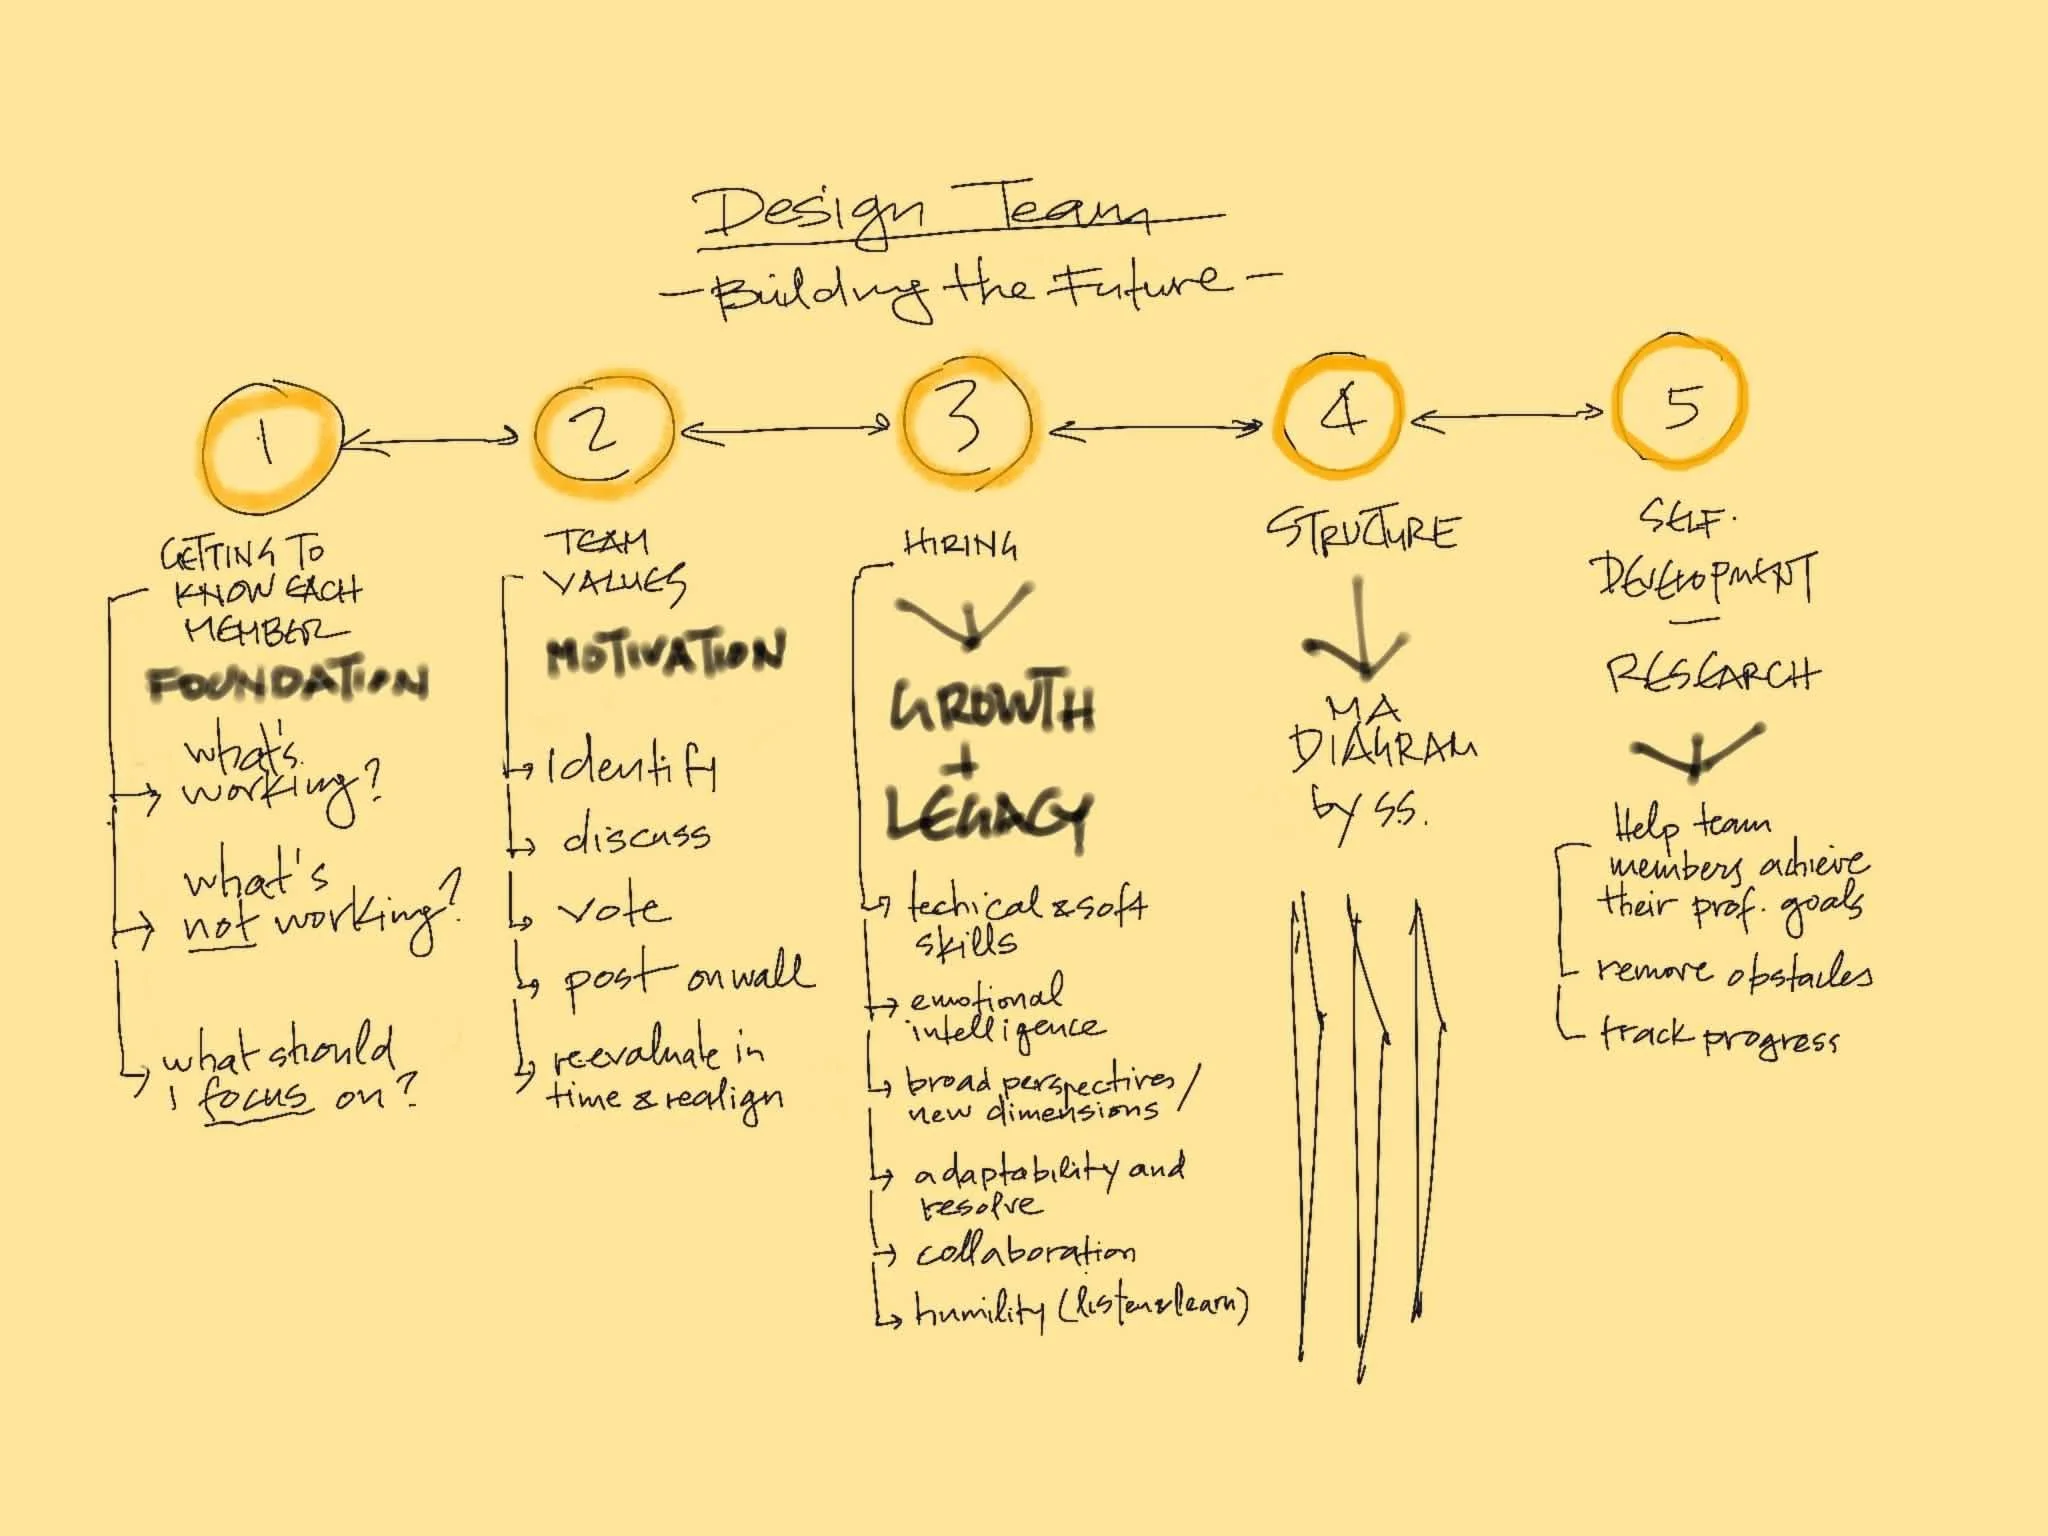 Design Team
- Building the Future -
1
2
3
4
5
GETTING TO
KNOW EACH
MEMBER
FOUNDATION
what's
working?
what's
not working?
what should
I focus on?
TEAM
VALUES
MOTIVATION
Identify
discuss
vote
post on wall
reevaluate in
time & realign
HIRING
GROWTH
+
LEGACY
techical & soft
skills
emotional
intelligence
broad perspectives/
new dimensions
adaptability and
resolve
collaboration
humility (listen & learn)
STRUCTURE
MA
DIAGRAM
by SS.
SELF.
DEVELOPMENT
—
RESEARCH
Help team
members achieve
their prof. goals
remove obstacles
track progress